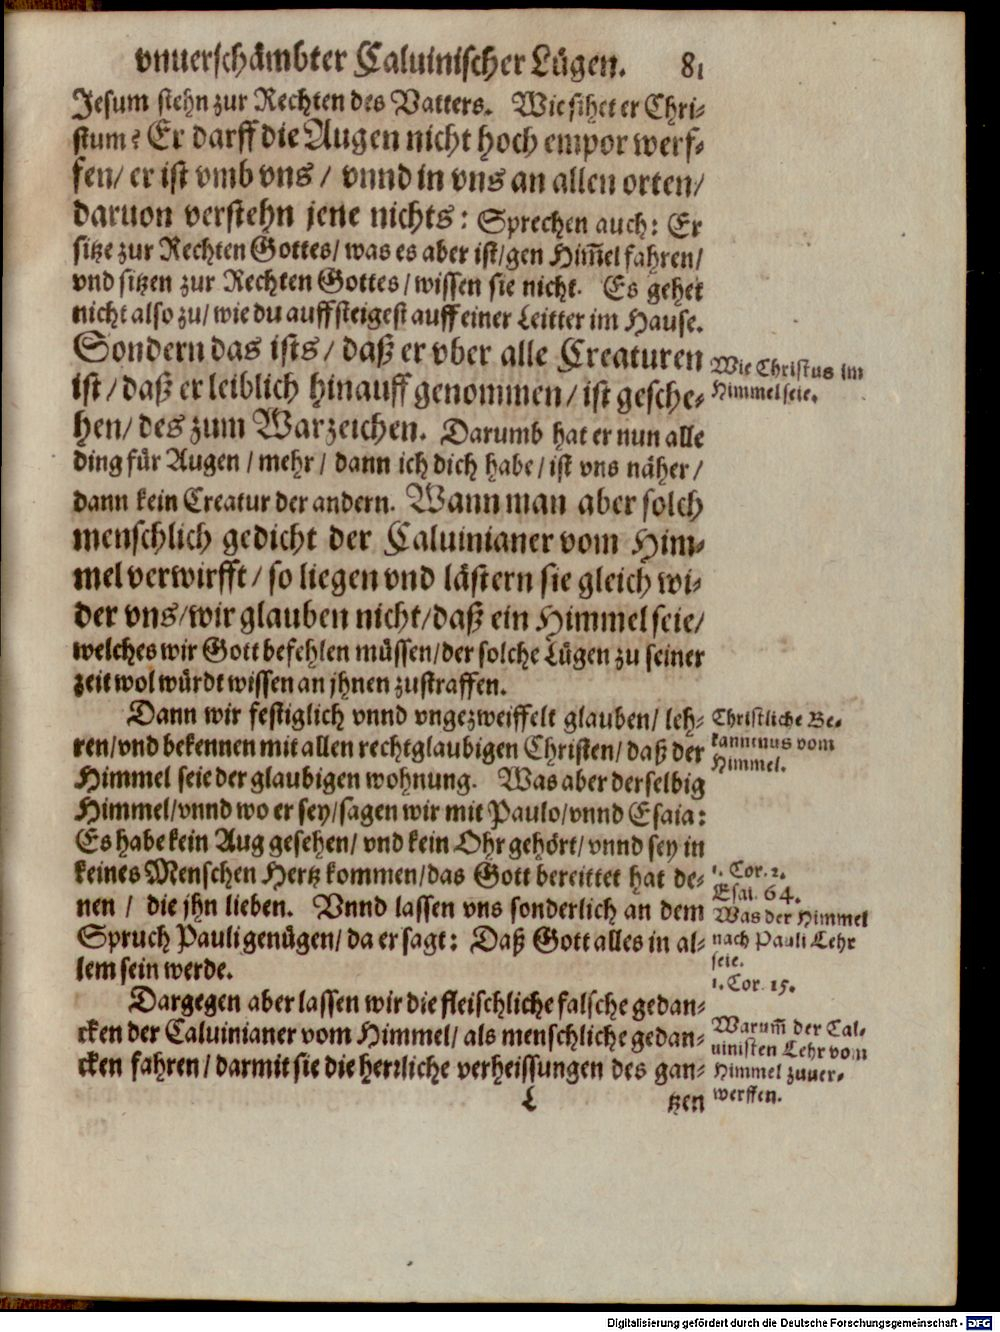 vnuerschämbter Caluinischer Lügen. 81
Jesum stehn zur Rechten des Vatters. Wie sihet er Chri-
stum? Er darff die Augen nicht hoch empor werf-
fen/ er ist vmb vns / vnnd in vns an allen orten/
daruon verstehn jene nichts: Sprechen auch: Er
sitze zur Rechten Gottes/ was es aber ist/gen Him̄el fahren/
vnd sitzen zur Rechten Gottes/ wissen sie nicht. Es gehet
nicht also zu/ wie du auffsteigest auff einer Leitter im Hause.
Sondern das ists/ daß er vber alle Creaturen
ist/ daß er leiblich hinauff genommen/ ist gesche-
hen/ des zum Warzeichen. Darumb hat er nun alle
ding für Augen / mehr/ dann ich dich habe/ ist vns näher/
dann kein Creatur der andern. Wann man aber solch
menschlich gedicht der Caluinianer vom Him-
mel verwirfft/ so liegen vnd lästern sie gleich wi-
der vns/wir glauben nicht/daß ein Himmel seie/
welches wir Gott befehlen müssen/der solche Lügen zu seiner
zeit wol würdt wissen an jhnen zustraffen.
Wie Christus im
Himmel seie.
Dann wir festiglich vnnd vngezweiffelt glauben/ leh-
ren/vnd bekennen mit allen rechtglaubigen Christen/ daß der
Himmel seie der glaubigen wohnung. Was aber derselbig
Himmel/vnnd wo er sey/sagen wir mit Paulo/vnnd Esaia:
Es habe kein Aug gesehen/ vnd kein Ohr gehört/ vnnd sey in
keines Menschen Hertz kommen/das Gott bereittet hat de-
nen / die jhn lieben. Vnnd lassen vns sonderlich an dem
Spruch Pauli genügen/ da er sagt: Daß Gott alles in al-
lem sein werde.
Christliche Be-
kanntnus vom
Himmel.
1. Cor. 2.
Esai. 64.
Was der Himmel
nach Pauli Lehr
seie.
1. Cor. 15.
Dargegen aber lassen wir die fleischliche falsche gedan-
cken der Caluinianer vom Himmel/ als menschliche gedan-
cken fahren/ darmit sie die herrliche verheissungen des gan-
Warum̄ der Cal-
uinisten Lehr vom
Himmel zuuer-
werffen.
L tzen
Digitalisierung gefördert durch die Deutsche Forschungsgemeinschaft - DFG